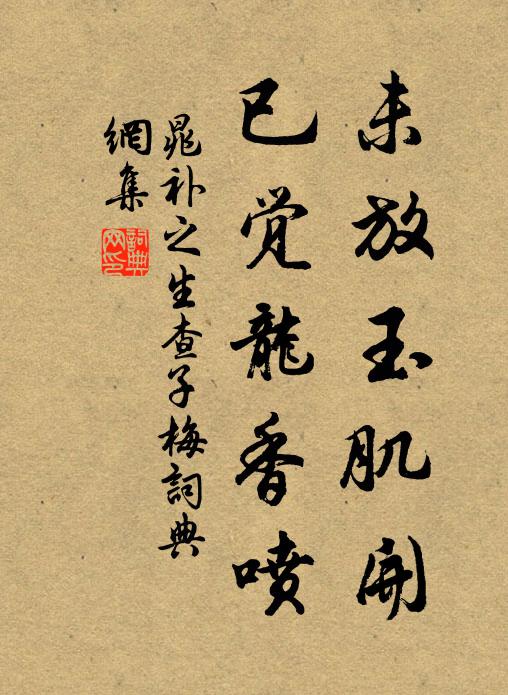 未放玉肌開
已觉龍香噴
晁补之生查子梅詞典
網集
詞典
网印